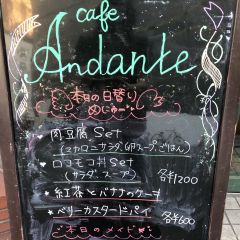 cafe
Andante
本日の日替り
めにゅー
肉豆腐 Set
(マカロニサラダ、卵スープ、ごはん)
ロコモコ丼 Set
(サラダ、スープ)
各¥1200
★紅茶とバナナのケーキ
★ベリーカスタードパイ
各¥600
本日のメイド